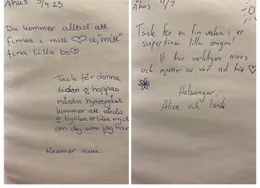 Åhus 5/4 23
Du kommer alltid att
finnas i mitt ♡ a, "mitt"
fina lilla bo♡
Tack för denna
tiden & hoppas
nästa hyresgäst
kommer att vårda
& byska er lika mycket
om dig som jag har
Kramar
Åhus 4/7
Tack för en fin vecka i er
superfina lilla stuga!
Vi har verkligen trivts
och njutit av vår tid här ♡
Hälsningar,
Alice och